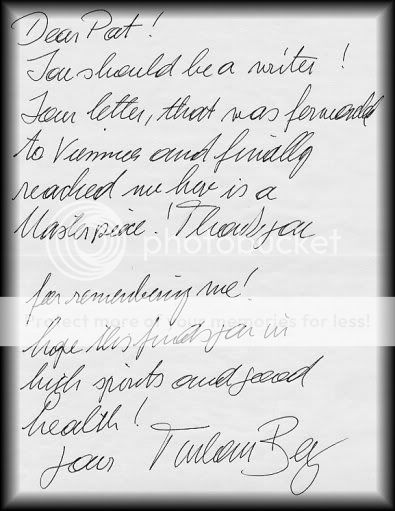 Dear Pat!
You should be a writer !
Your letter, that was forwarded
to Vienna and finally
reached me here is a
Masterpiece! Thank you
photobucket
for remembering me!
Protect more of your memories for less!
hope this finds you in
high spirits and good
health!
Your Turhan Bey